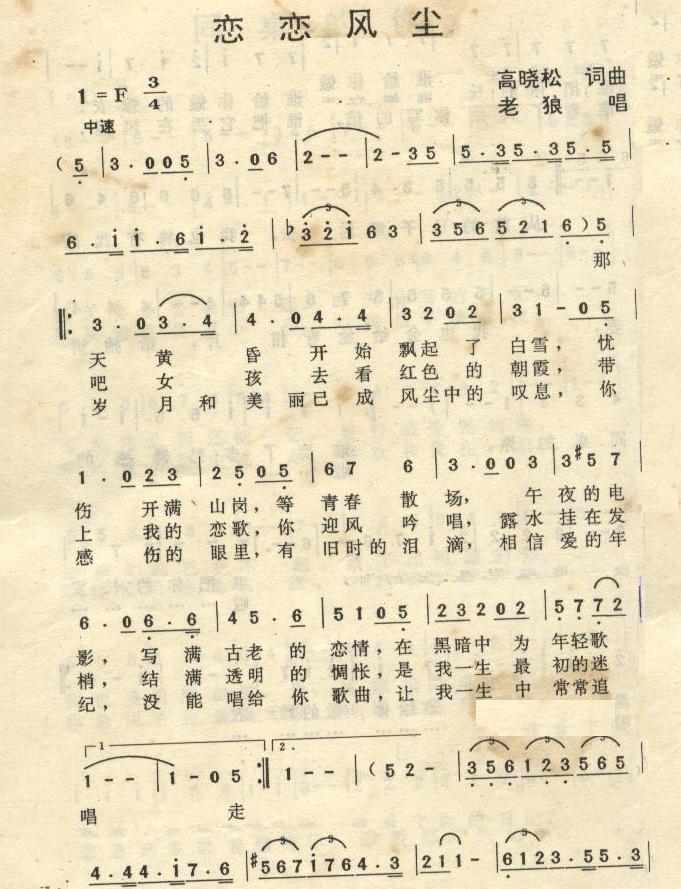 恋恋风尘
1=F 3/4
高晓松 词曲
中速
老狼 唱
(5 | 3·005 | 3·06 | 2-- | 2-35 | 5·35·35·5
6·i1·6i·2 | ♭32i63 | 356521 6)5
那
3·03·4 | 4·04·4 | 3202 | 31-05
天 黄 昏 开 始 飘起 了 白雪, 忧
吧 女 孩 去 看 红色 的 朝霞, 带
岁 月 和 美 丽已 成 风尘中的 叹息, 你
1·023 | 2505 | 67 6 | 3·003 | 3#57
伤 开满 山岗,等 青春 散 场, 午 夜的电
上 我的 恋歌,你 迎风 吟 唱, 露水 挂在发
感 伤的 眼里,有 旧时的泪 滴,相信 爱的年
6·06·6 | 45·6 | 5105 | 23202 | 5772
影, 写 满 古老 的 恋情,在 黑暗中 为 年轻歌
梢, 结 满 透明 的 惆怅,是 我一生 最 初的迷
纪, 没 能 唱给 你 歌曲,让 我一生 中 常常追
1 2.
1-- | 1-05 :‖ 1-- | (52- | 356123565
唱 走
4·44·i7·6 | #567i764·3 | 211- | 6123·55·3